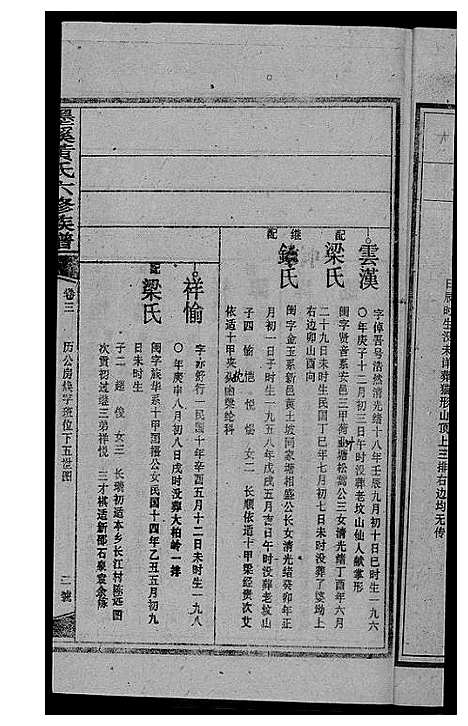 日辰时生没未详葬狮形山顶上三排右边均无传
雲漢
字倬吾号浩然清光绪十八年壬辰九月初十日巳时生一九六
〇年庚子十二月初三日午时没葬老坟山仙人献掌形
配梁氏
闺字贤音系安邑三甲荷塘松嵩公三女清光绪丁酉年六月
二十九日未时生民国丁巳年七月初七日未时没葬了婆坳上
右边卯山酉向
继配 氏
闺字金玉系新邑黄土坡同家塘相盛公长女清光绪癸卯年正
月初一日子时生一九五八年戊戌年五月吉日午时没葬老坟山
子四 愉 恺 悦 女二 长顺依适十甲梁经贵次艾
依适十甲夹 梁纶科
祥愉
字 行一民国十年辛酉五月十二日未时生一九八
〇年庚申八月初八日戌时没葬大柏岭一排
配梁氏
闺字族华系十甲国 公女民国十四年乙丑五月初九
日未时生
子二 超 俊 女三 长 初适本乡长江村陈远图
次贡初过继三弟祥悦 三才棋适新邵石泉袁余修
墨溪黄氏六修族谱
卷三
历公房焕字班位下五世图
二號